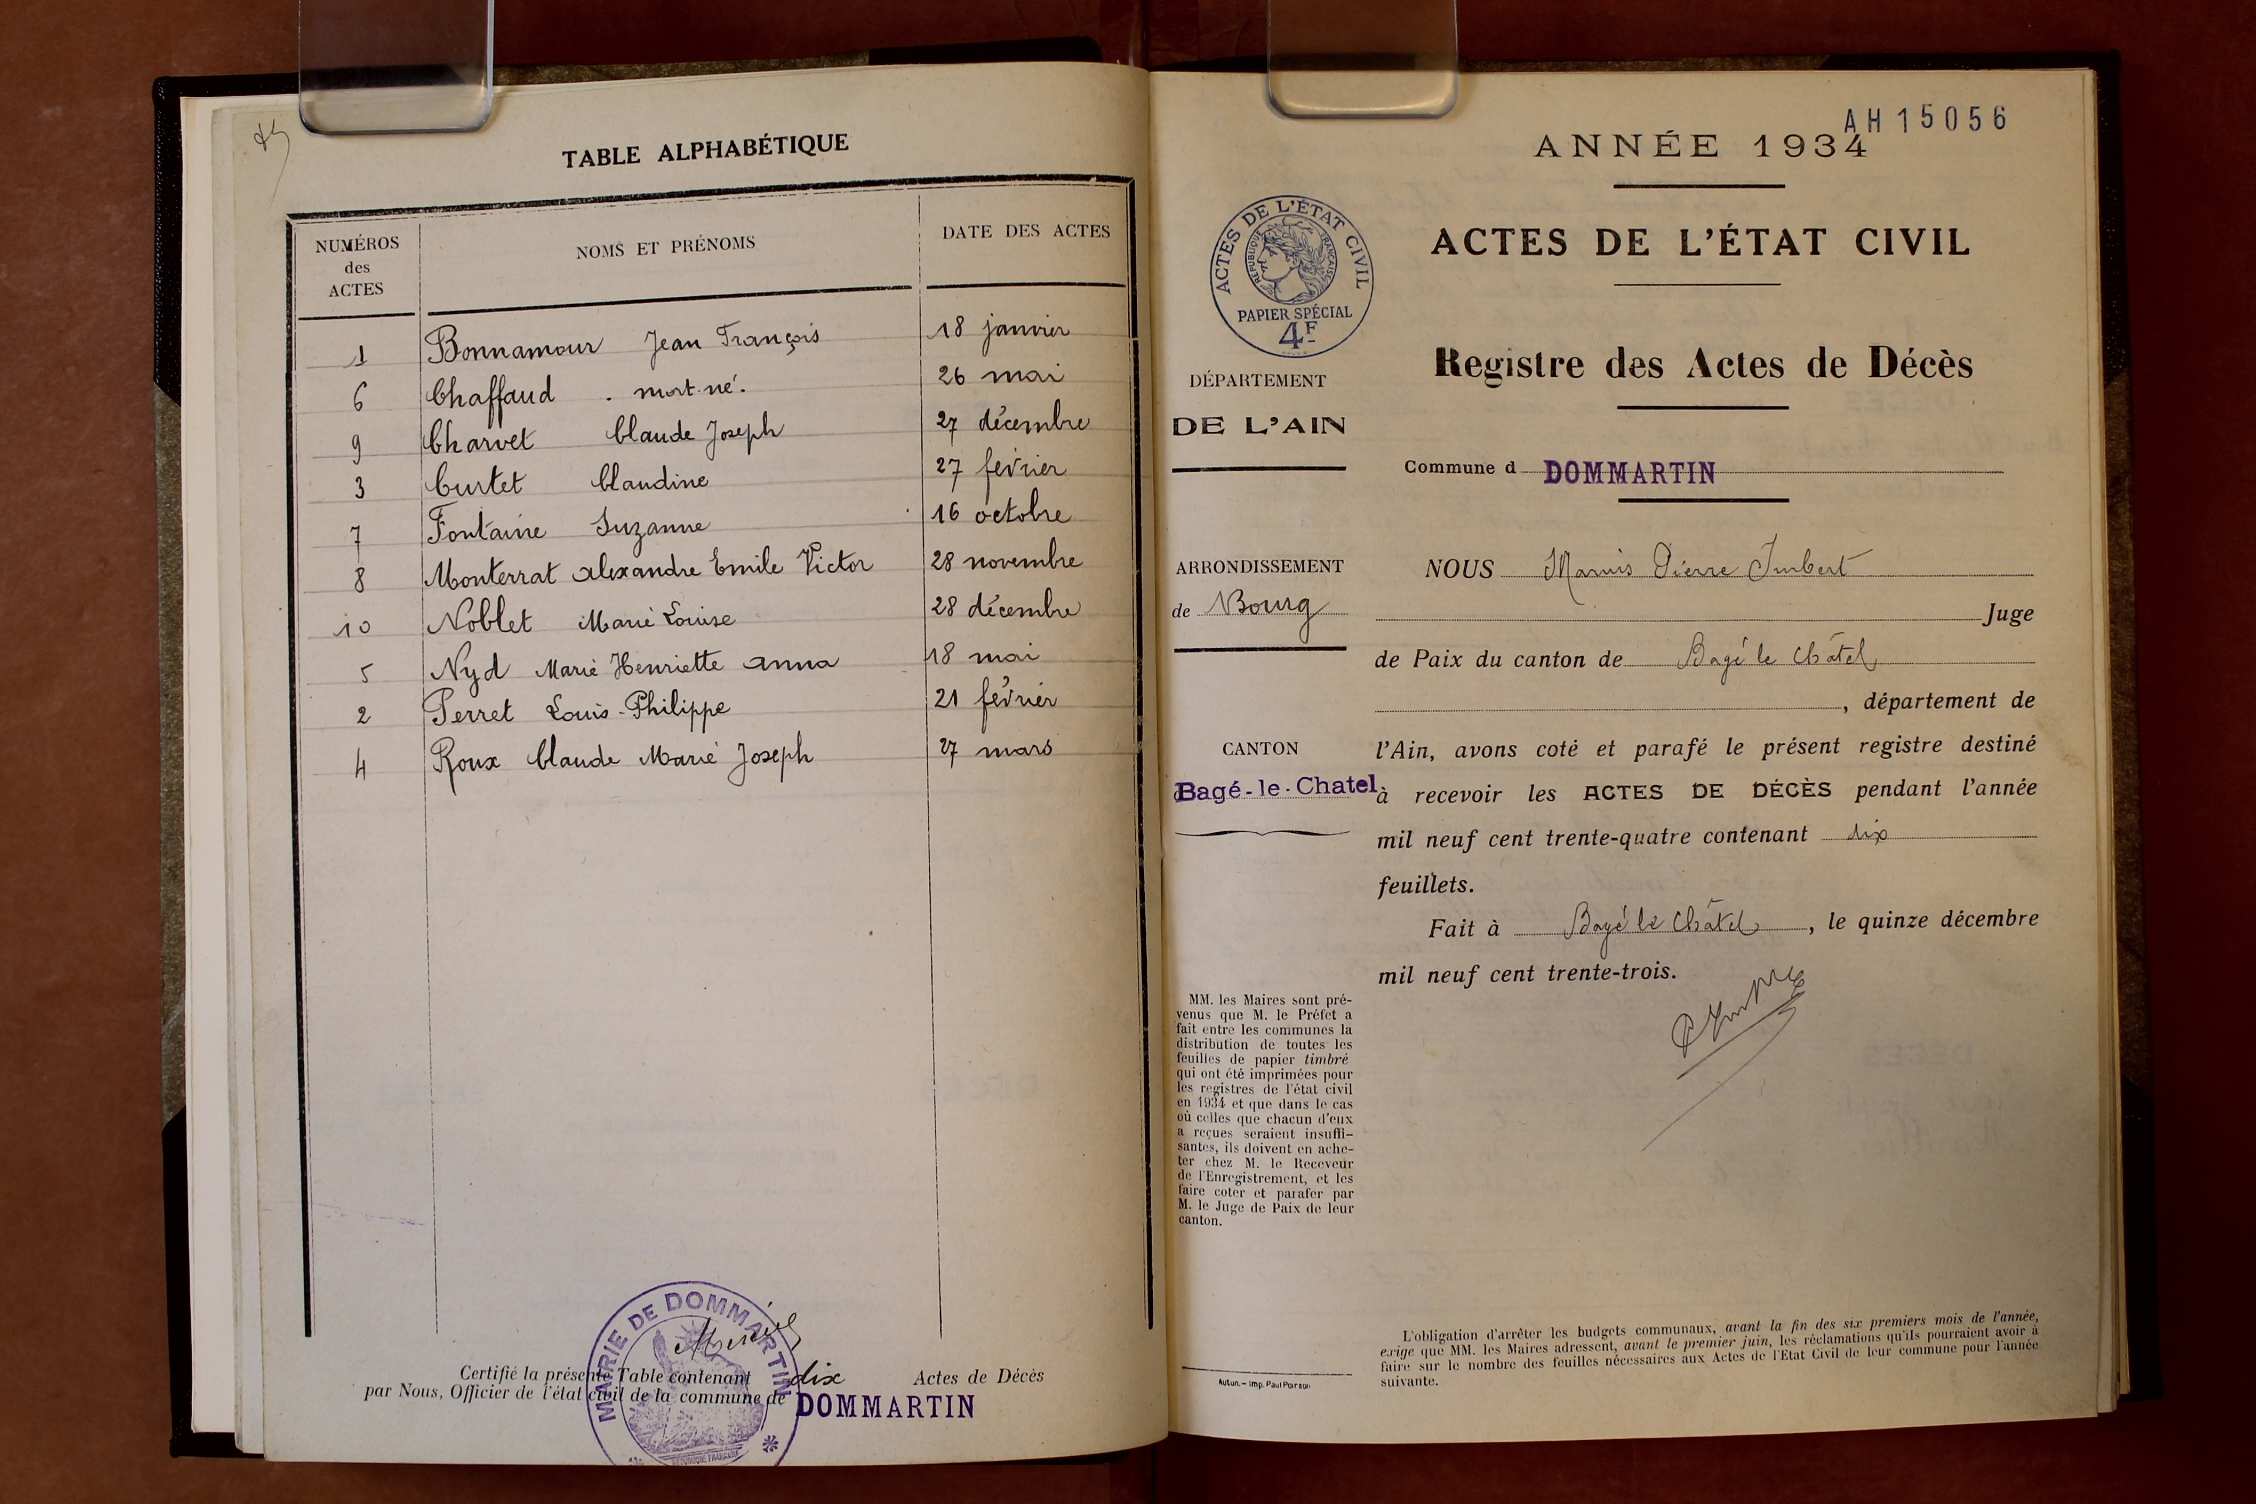 TABLE ALPHABÉTIQUE
NUMÉROS
des
ACTES
NOMS ET PRÉNOMS
DATE DES ACTES
1 Bonnamour Jean François 18 janvier
6 Chaffaud . mort-né. 26 mai
9 Charvet Claude Joseph 27 décembre
3 Curtet Claudine 27 février
7 Fontaine Suzanne 16 octobre
8 Monterrat Alexandre Emile Victor 28 novembre
10 Noblet Marie Louise 28 décembre
5 Nyd Marie Henriette Anna 18 mai
2 Perret Louis-Philippe 21 février
4 Roux Claude Marie Joseph 27 mars
MAIRIE DE DOMMARTIN
RÉPUBLIQUE FRANÇAISE
Certifié la présente Table contenant dix Actes de Décès
par Nous, Officier de l'état civil de la commune de DOMMARTIN
AH15056
ANNÉE 1934
ACTES DE L'ÉTAT CIVIL
RÉPUBLIQUE FRANÇAISE
PAPIER SPÉCIAL
4F
ACTES DE L'ÉTAT CIVIL
Registre des Actes de Décès
DÉPARTEMENT
DE L'AIN
Commune d DOMMARTIN
ARRONDISSEMENT
de Bourg
CANTON
Bagé-le-Chatel
NOUS Marius Pierre Imbert
Juge
de Paix du canton de Bagé le Châtel
, département de
l'Ain, avons coté et parafé le présent registre destiné
à recevoir les ACTES DE DÉCÈS pendant l'année
mil neuf cent trente-quatre contenant dix
feuillets.
Fait à Bagé le Châtel, le quinze décembre
mil neuf cent trente-trois.
MM. les Maires sont pré-
venus que M. le Préfet a
fait entre les communes la
distribution de toutes les
feuilles de papier timbré
qui ont été imprimées pour
les registres de l'état civil
en 1934 et que dans le cas
où celles que chacun d'eux
a reçues seraient insuffi-
santes, ils doivent en ache-
ter chez M. le Receveur
de l'Enregistrement, et les
faire coter et parafer par
M. le Juge de Paix de leur
canton.
Autun. - Imp. Paul Poirson
L'obligation d'arrêter les budgets communaux, avant la fin des six premiers mois de l'année,
exige que MM. les Maires adressent, avant le premier juin, les réclamations qu'ils pourraient avoir à
faire sur le nombre des feuilles nécessaires aux Actes de l'Etat Civil de leur commune pour l'année
suivante.